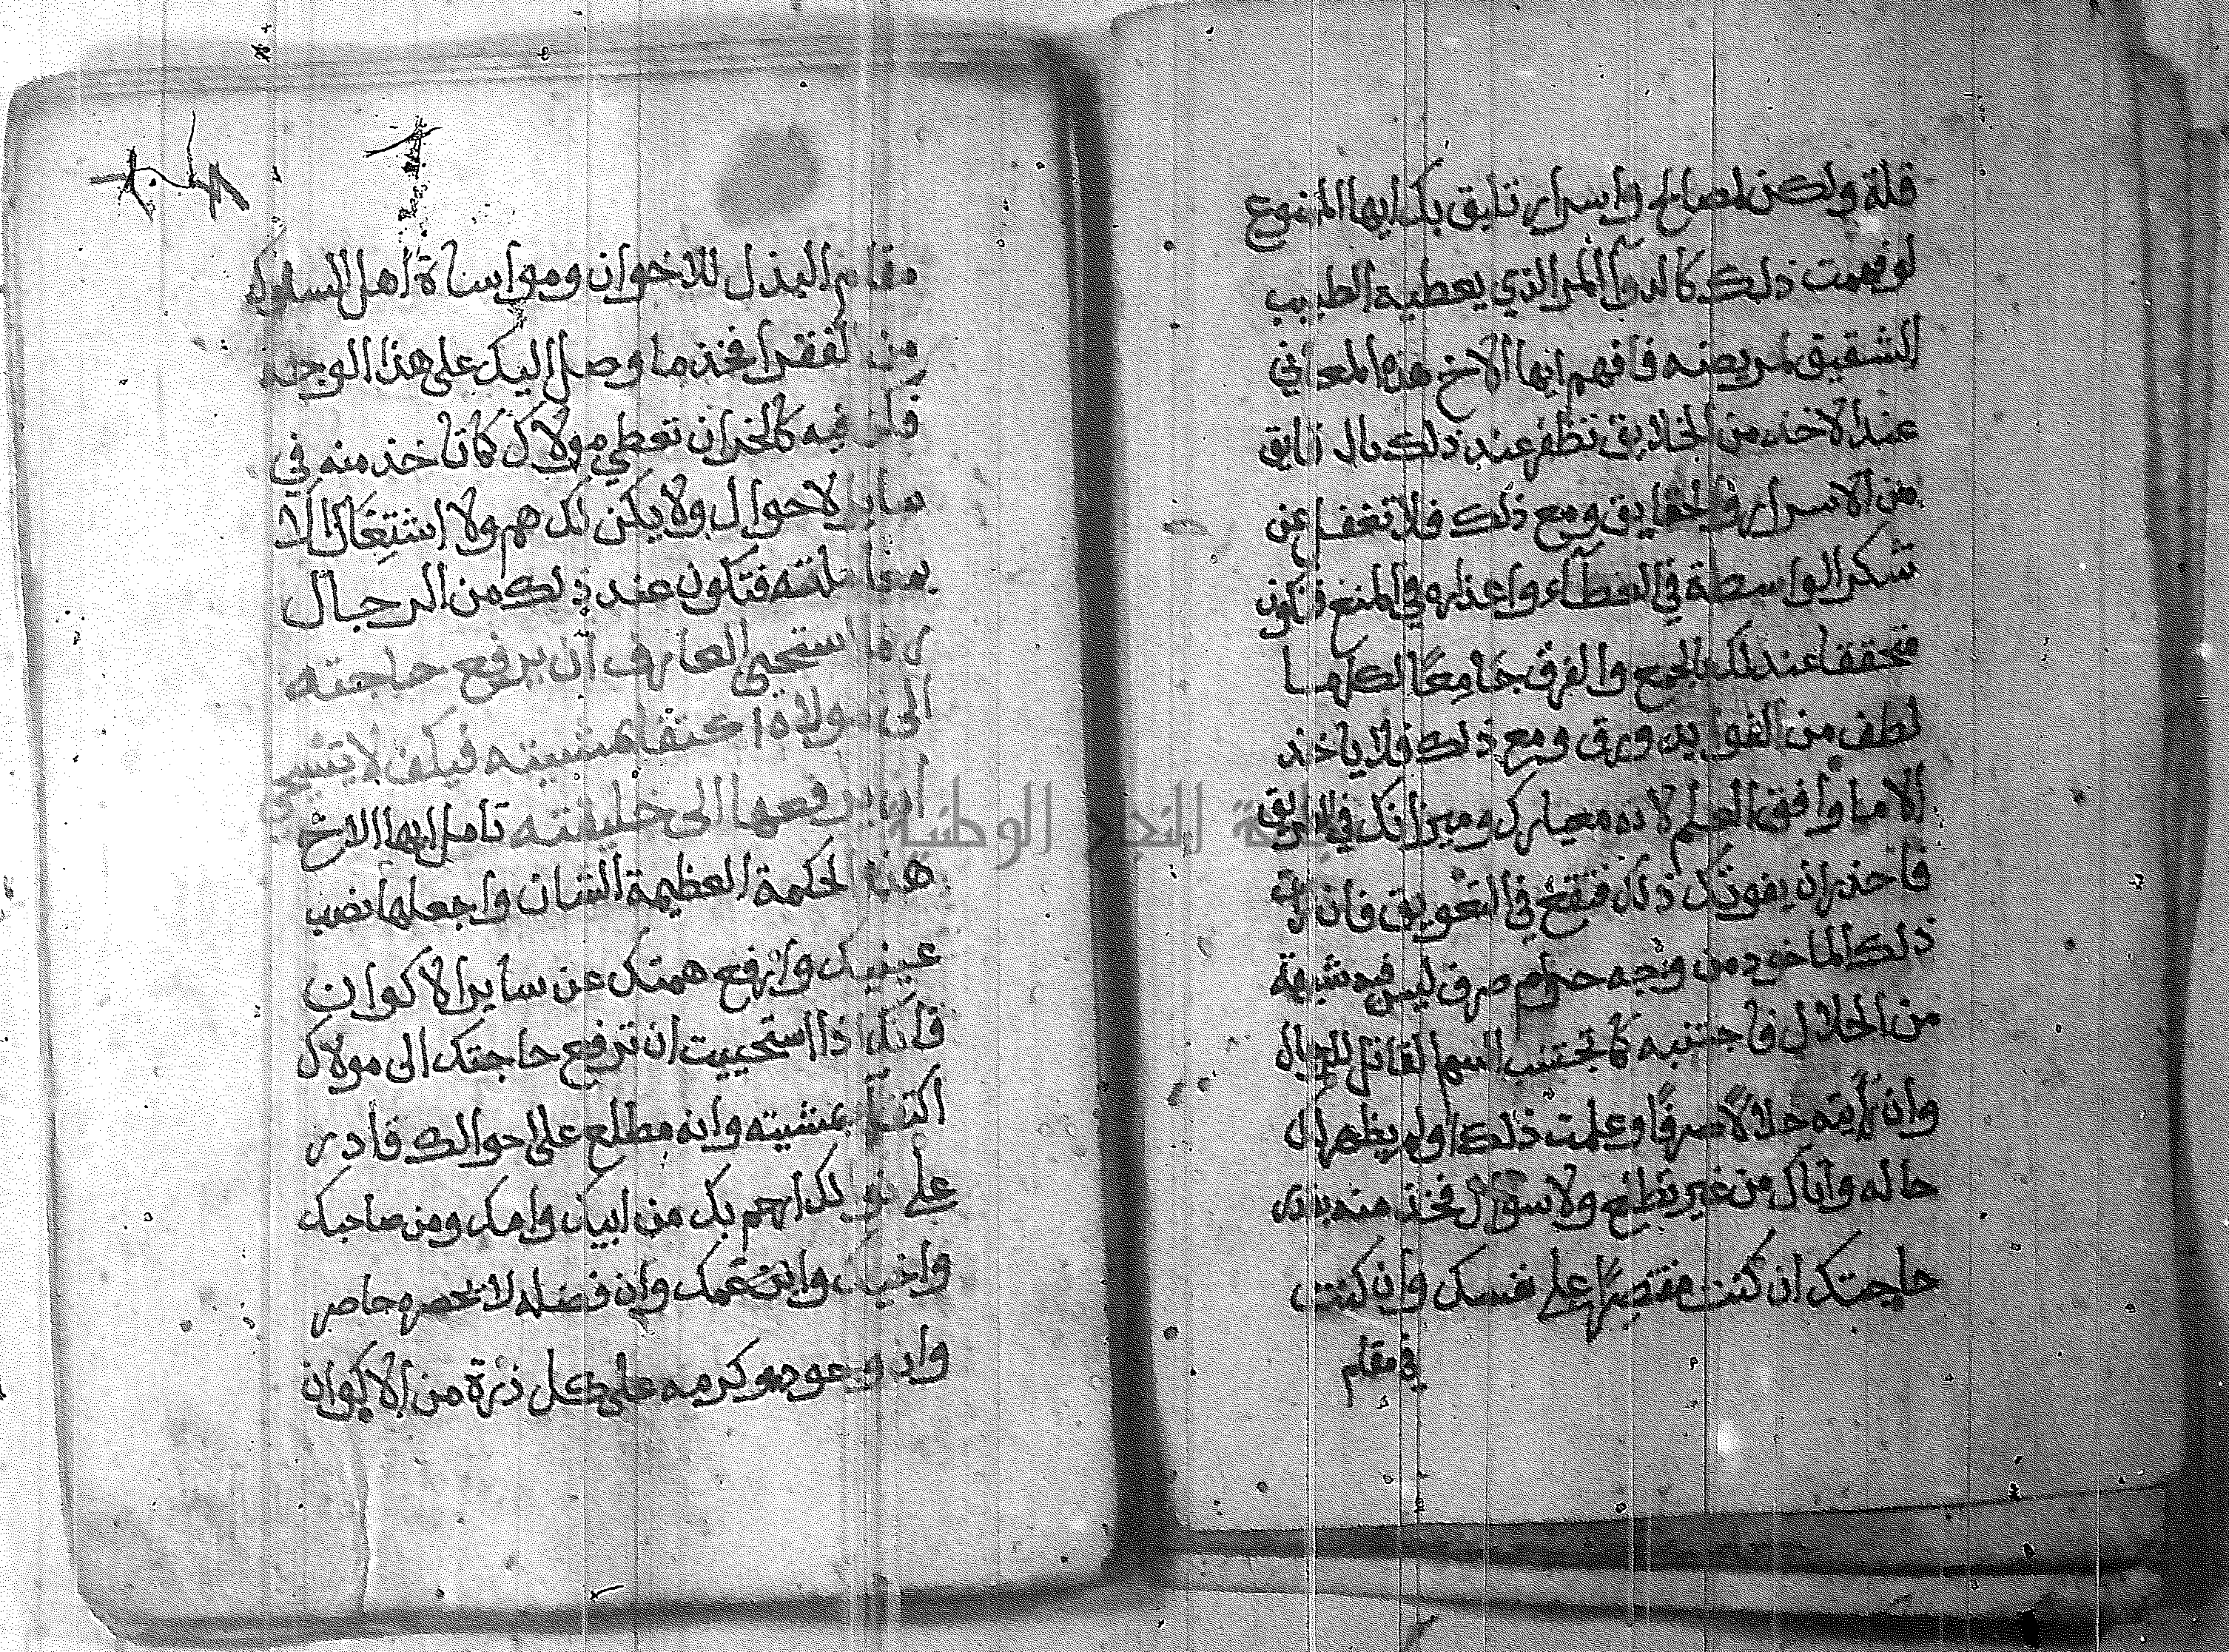 قلة ولكن لمصالح واسرار تليق بك ايها الممنوع
لو فهمت ذلك كالدوآ المر الذي يعطيه الطبيب
الشفيق لمريضه فافهم ايها الاخ هذه المعاني
عند الاخذ من الخلايق تظفر عند ذلك بال
من الاسرار والحقايق ومع ذلك فلا تغفل عن
شكر الواسطة في العطآء واعذاره في المنع فتكون
متحققا عند ذلك بالجمع والفرق جَامِعًا لكلما
لطف من الفوايد ورق ومع ذلك فلا ياخذ
الا ما وافق العلم لانه معيارك وميزانك في الطريق
فاحذر ان يفوتك ذلك فتقع في التعويق فان رايت
ذلك الماخوذ من وجه حرام صرف ليس فيه شبهة
من الحلال فاجتنبه كما تجتنب السم القاتل للرجال
وان رأيته حلالًا صرفًا وعلمت ذلك او لم يظهر لك
حاله واتاك من غير تطلع ولا سؤال فخذ منه بقدر
حاجتك ان كنت مقتصرًا على نفسك وان كنت
في مقام
مقام البذل للاخوان ومواساة اهل السلوك
من الفقرا فخذ ما وصل اليك على هذا الوجه
فكن فيه كالخزان تعطي مولاك كما تاخذ منه في
ساير الاحوال ولا يكن لك هم ولا اشتِغَال الا
بمعاملته فتكون عند ذلك من الرجال
ربما استحيى العارف ان يرفع حاجته
الى مولاه اكتفا بمشيته فكيف لا يستحي
ان يرفعها الى خليقته تامل ايها الاخ
هذه الحكمة العظيمة الشان واجعلها نصب
عينيك وارفع همتك عن ساير الاكوان
فانك اذا استحييت ان ترفع حاجتك الى مولاك
اكتفآء بمشيته وانه مطلع على احوالك قادر
على لك ارحم بك من ابيك وامك ومن صاحبك
واخيك وابن عمك وان فضله لا يحصره حاصر
وان وجوده وكرمه على كل ذرة من الاكوان
جامعة النجاح الوطنية